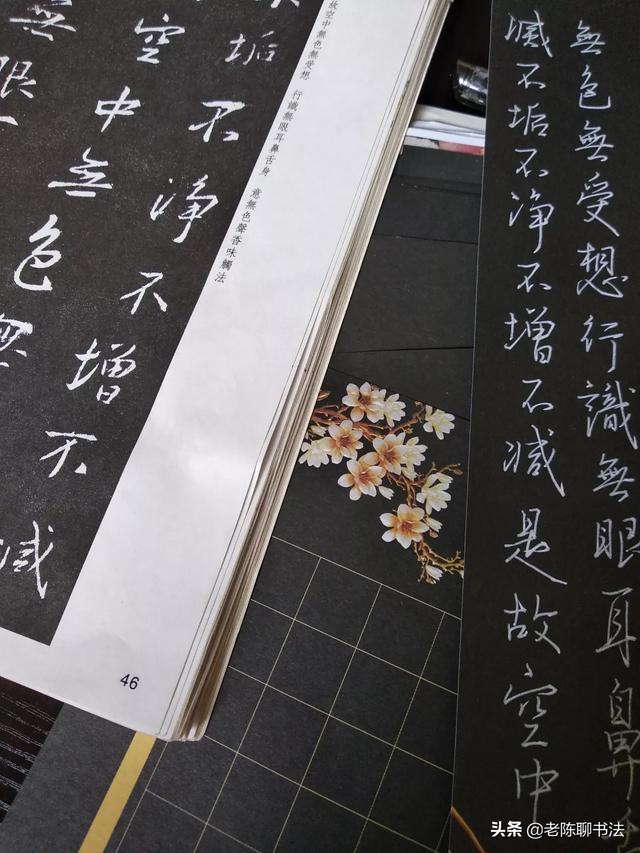 無色無受想行識無眼耳鼻
滅不垢不净不增不减是故空中
故空中無色無受想 行識無眼耳鼻舌身 意無色聲香味觸法
垢不净不增不减
空中無色無
無眼
46
头条 @老陈聊书法